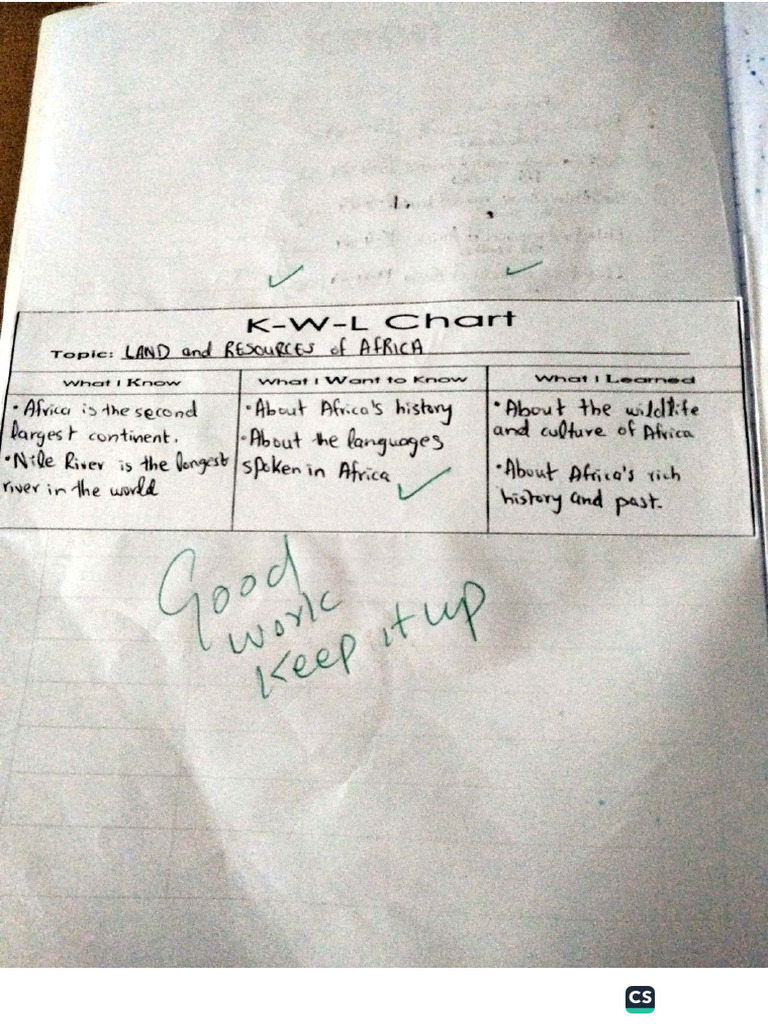 K-W-L Chart
Topic: LAND and RESOURCES of AFRICA
What I Know
What I Want to Know
What I Learned
• Africa is the second
largest continent.
• Nile River is the longest
river in the world
• About Africa's history
• About the languages
spoken in Africa
• About the wildlife
and culture of Africa
• About Africa's rich
history and past.
Good
work
Keep it up
CS